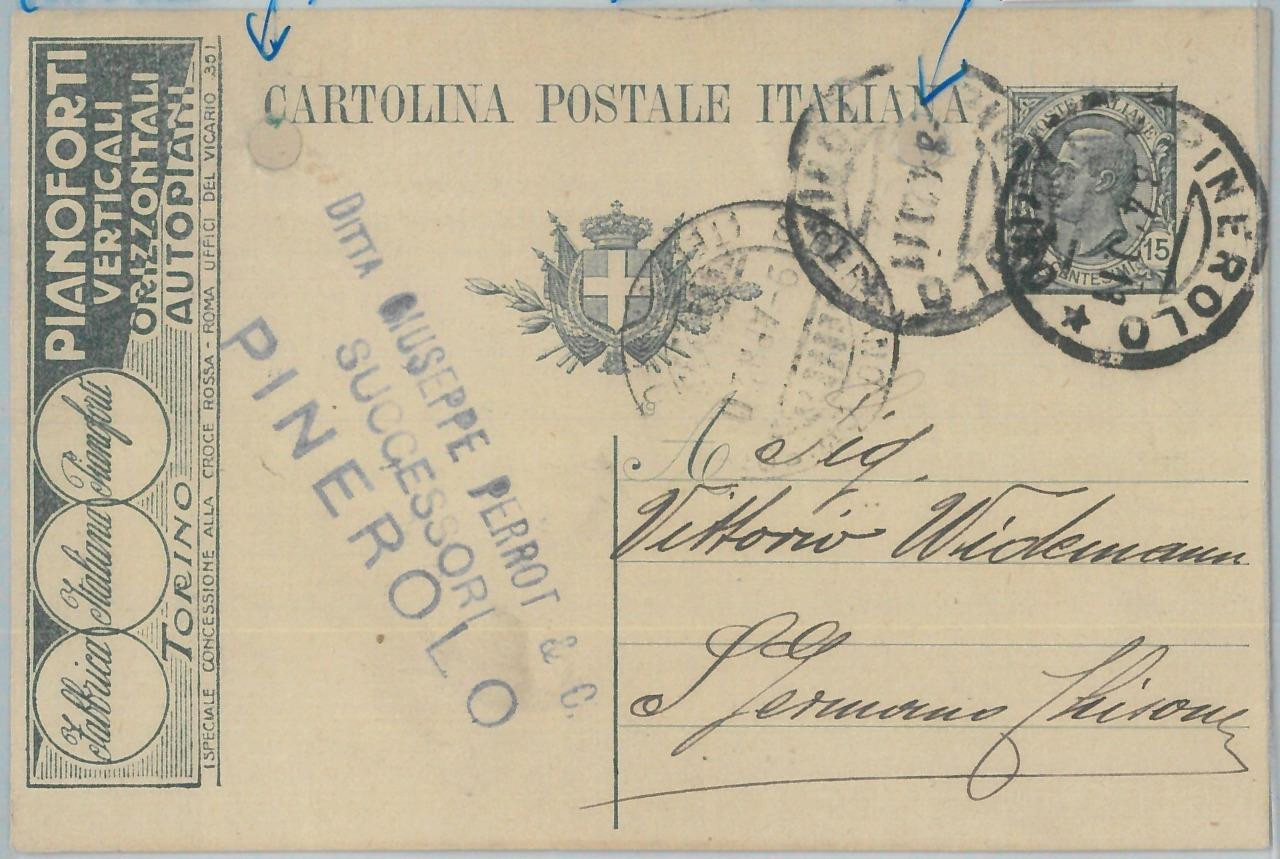 CARTOLINA POSTALE ITALIANA
PIANOFORTI
VERTICALI
ORIZZONTALI
AUTOPIANI
Fabbrica Italiana Pianoforti
TORINO
(SPECIALE CONCESSIONE ALLA CROCE ROSSA - ROMA UFFICI DEL VICARIO 35)
DITTA GIUSEPPE PERROT & C.
SUCCESSORI
PINEROLO
POSTE ITALIANE
15
CENTESIMI
PINEROLO
PINEROLO
A Sig.
Vittorio Widemann
S. Germano Chisone